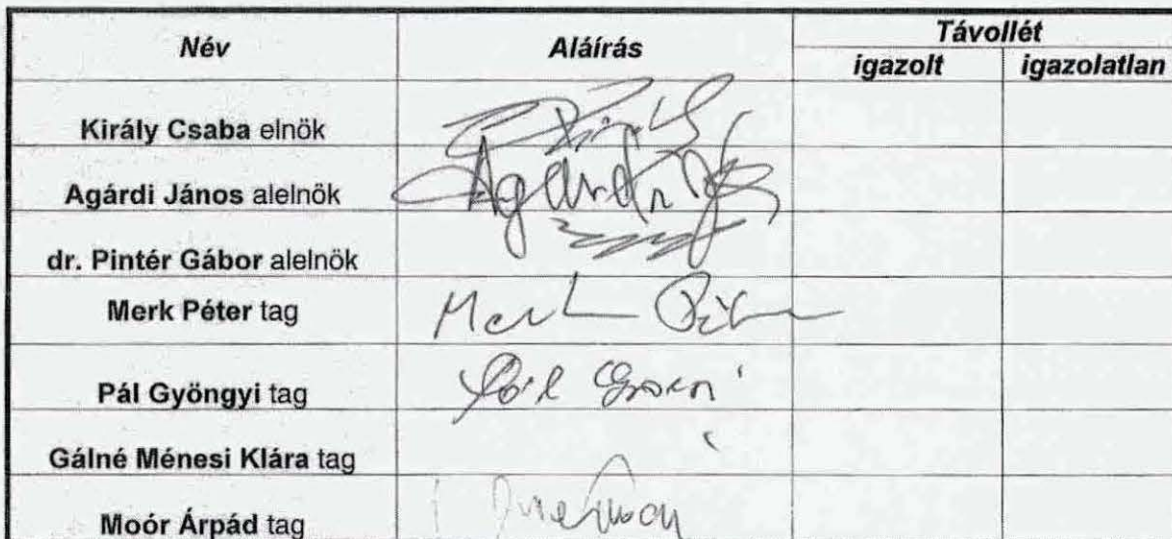 Név Aláírás Távollét
igazolt igazolatlan
Király Csaba elnök
Agárdi János alelnök Agárdi
dr. Pintér Gábor alelnök
Merk Péter tag Merk Péter
Pál Gyöngyi tag Pál
Gálné Ménesi Klára tag
Moór Árpád tag